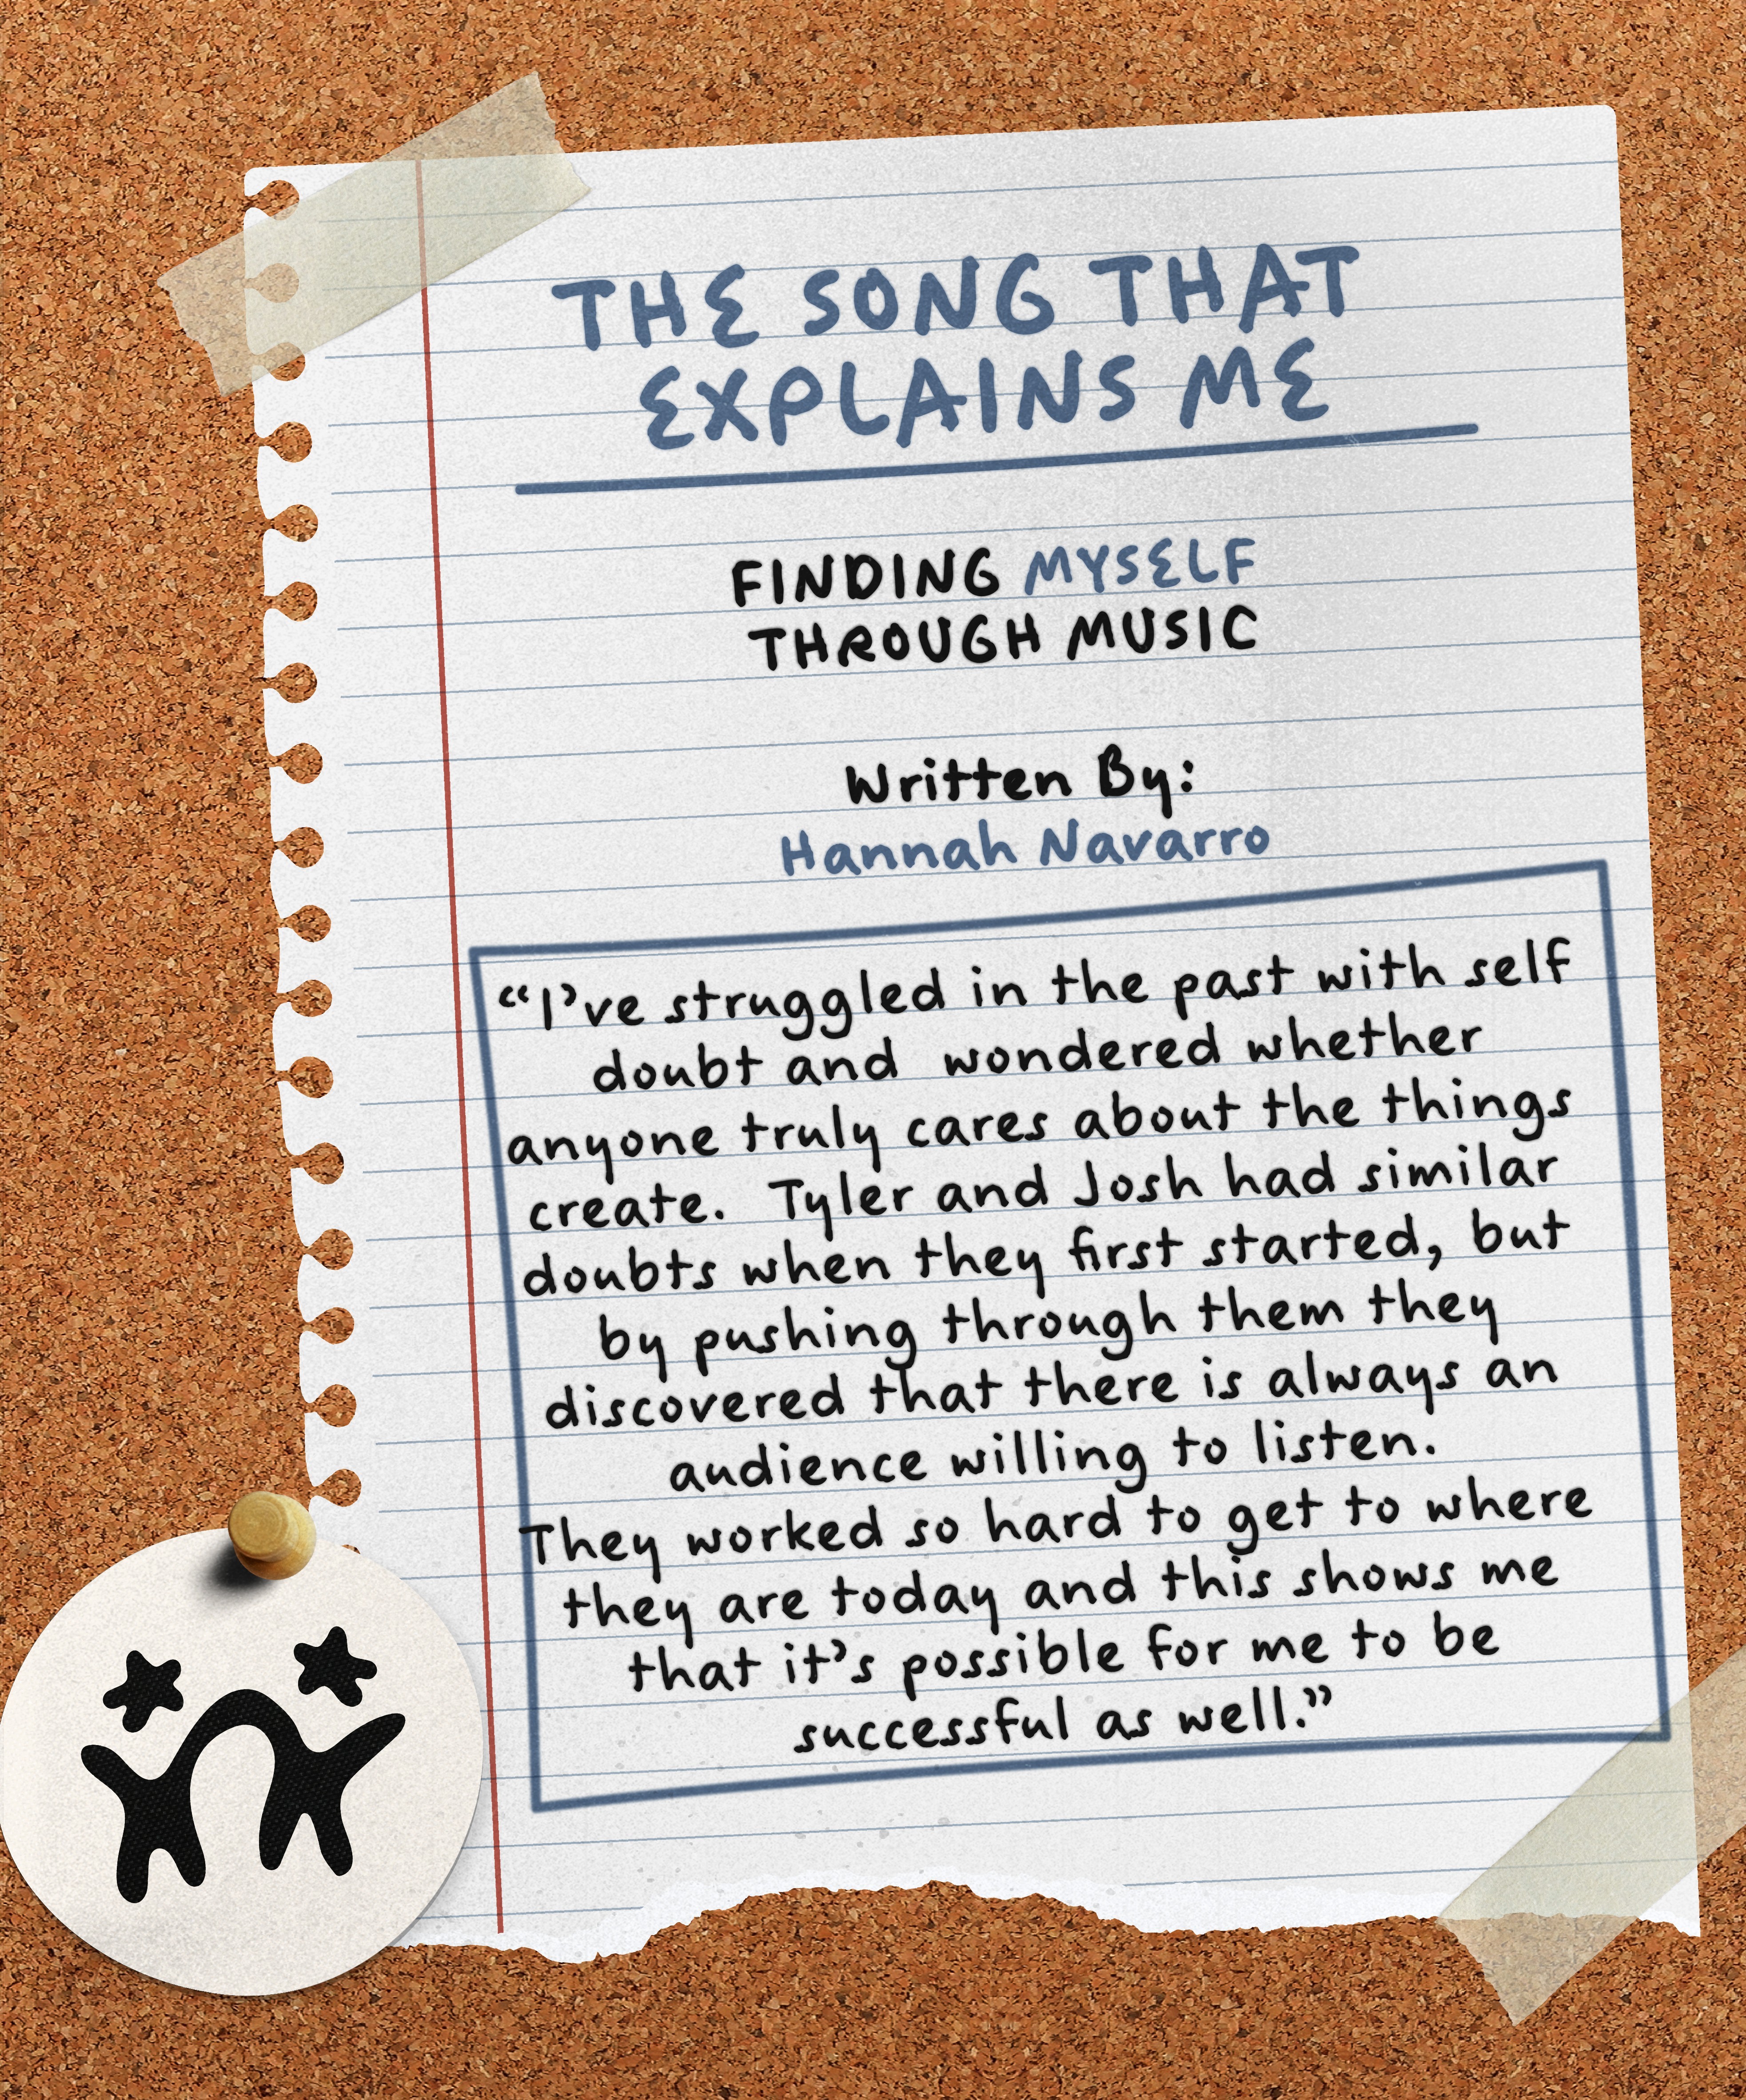 THE SONG THAT
EXPLAINS ME
FINDING MYSELF
THROUGH MUSIC
Written By:
Hannah Navarro
“I’ve struggled in the past with self
doubt and wondered whether
anyone truly cares about the things
create. Tyler and Josh had similar
doubts when they first started, but
by pushing through them they
discovered that there is always an
audience willing to listen.
They worked so hard to get to where
they are today and this shows me
that it’s possible for me to be
successful as well.”